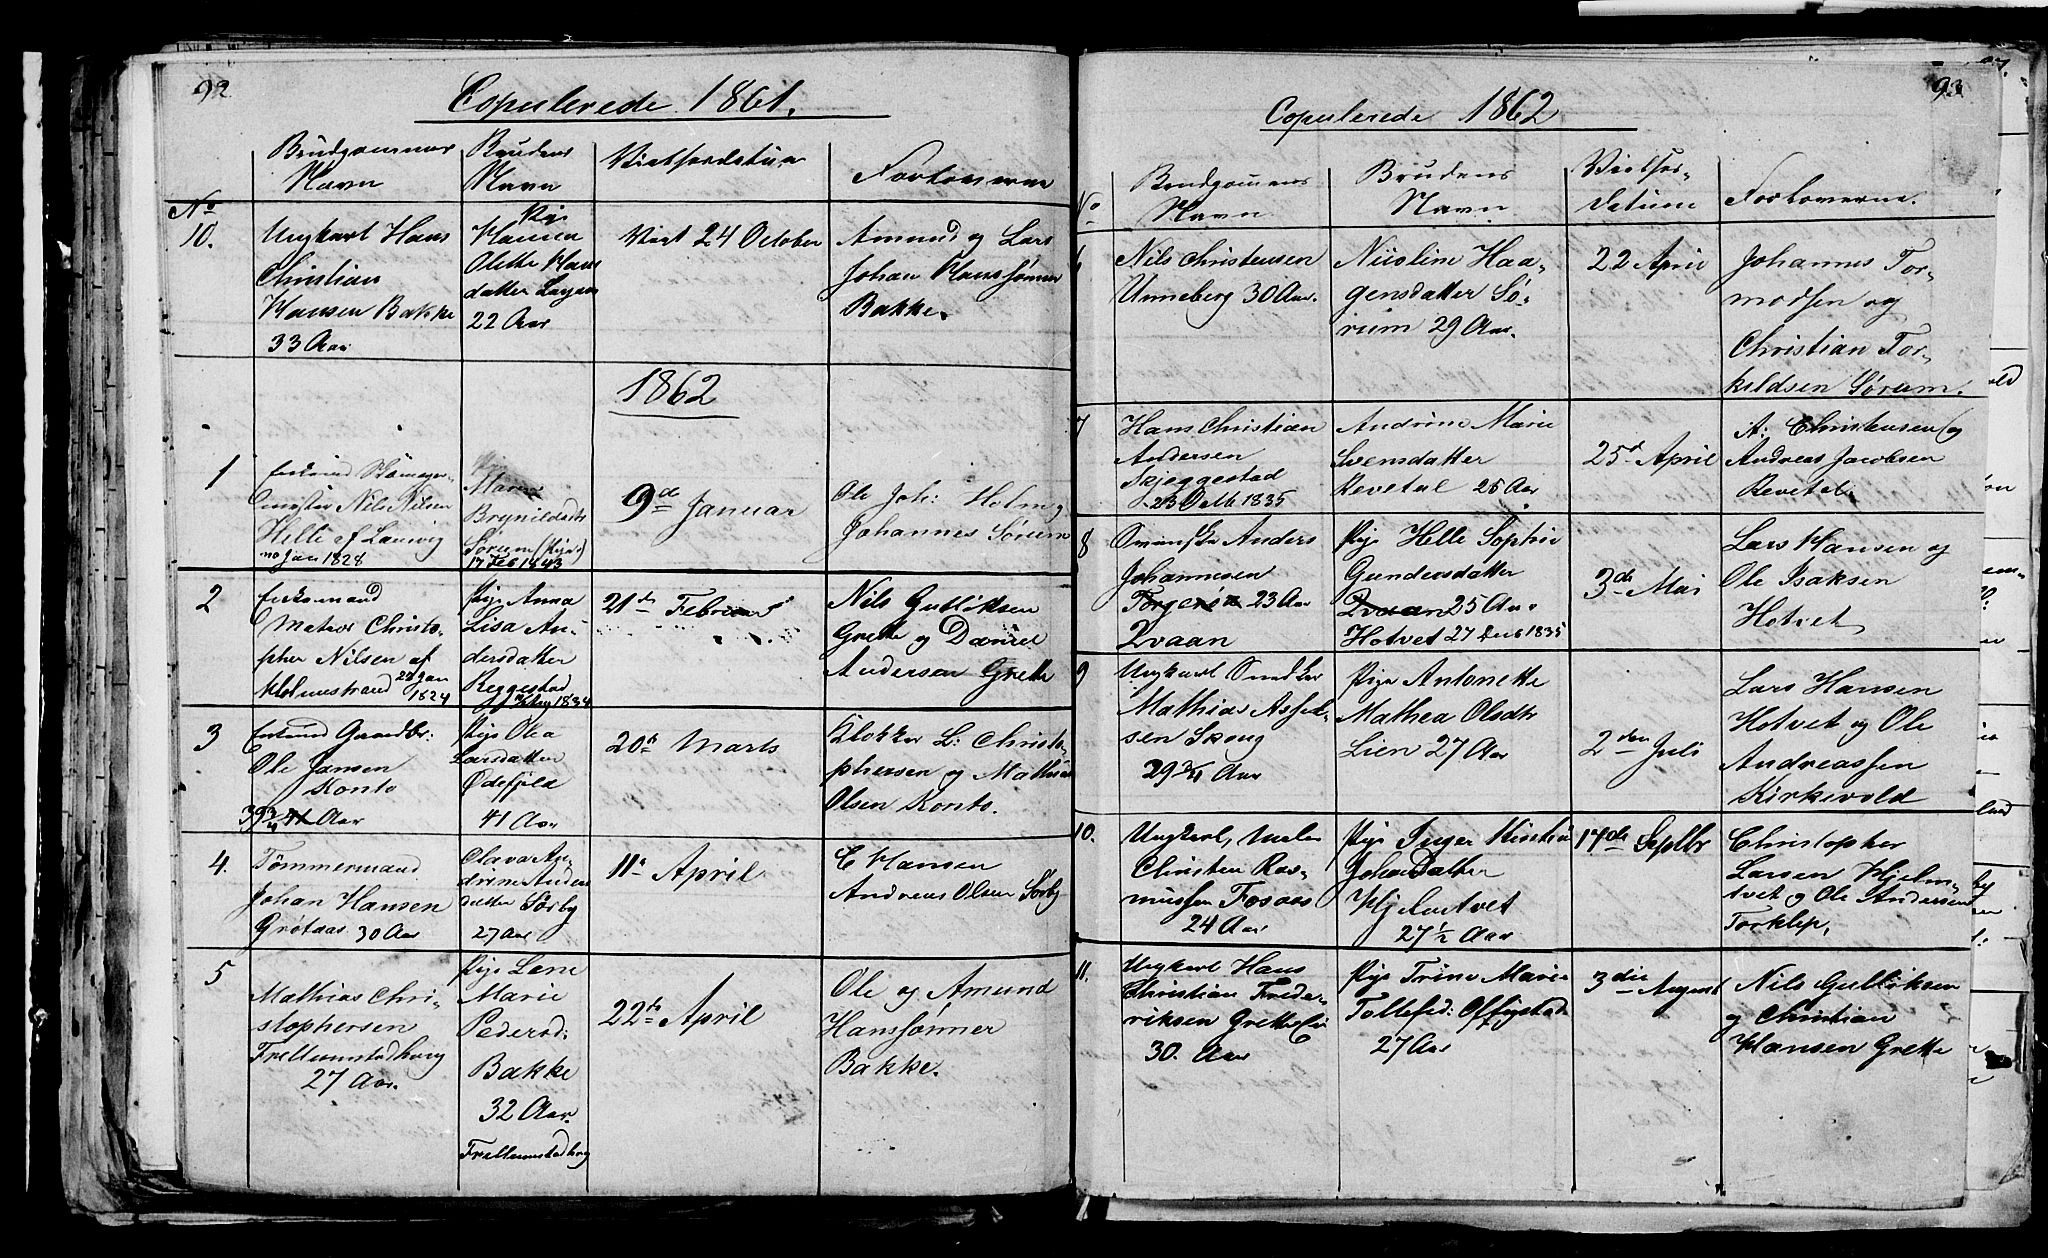 92.
Copulerede 1861.
Brudgommens Navn
Brudens Navn
Vielsesdatum
Forlovere
No
10.
Ungkarl Hans
Christian
Hansen Bakke
33 Aar
Pige
Karen
Olette Hans
datter
22 Aar
Viet 24 October
Amund og Lars
Johan Hanssønner
Bakke.
1862
1
Enkemand
Nils Nilsen
Helle af Laurvig
Jan 1828
Pige
Maren
Brynildsdtr
Sørum (Pige)
17 Feb 1843
9d Januar
Ole Joh: Holm og
Johannes Sørum
2
Enkemand
Matros Christo-
pher Nilsen af
Holmestrand 22 Jan
1824
Pige Anna
Lisa An-
dersdatter
Reggestad
1834
21de Februar
Nils Gulliksen
Grette og Daniel
Andersen Grette
3
Enkemd Gaardbr:
Ole Jansen
Konto
39 3/4 41 Aar
Pige Olea
Larsdatter
Ødefjeld
41 Aar
20de Marts
Klokker L: Christo-
phersen og Mathias
Olsen Konto.
4.
Tømmermand
Johan Hansen
Grøtaas 30 Aar
Olava An-
drine Anders
datter Sørby
27 Aar
11te April
C Hansen
Andreas Olsen Sørby
5
Mathias Chri-
stophersen
Trellumstadborg
27 Aar.
Pige Lene
Marie
Pedersd:
Bakke
32 Aar.
Trellumstadborg
22de April
Ole og Amund
Hanssønner
Bakke.
93
Copulerede 1862
No
Brudgomens
Navn
Brudens
Navn
Vielses-
datum
Forloverne.
6
Nils Christensen
Unneberg 30 Aar.
Nicoline Haa-
gensdatter Sø-
rum 29 Aar.
22 April
Johannes Tor-
modsen og
Christian Tor-
kildsen Sørum.
7
Hans Christian
Andersen
Skjeggestad
23 Octb 1835
Andrine Marie
Svensdatter
Revetal 25 Aar
25d April
A: Christensen og
Andreas Jacobsen
Revetal.
8
Anders
Johannesen
Torgersen 23 Aar
Qvaan
Pige Helle Sophie
Gundersdatter
Qvaan 25 Aar
Hotvet 27 Decb 1835
3de Mai
Lars Hansen og
Ole Isaksen
Hotvet
9
Ungkarl
Mathias
sen Skoug
29 3/4 Aar
Pige Antonette
Mathea Olsdtr
Lien 27 Aar
2den Juli
Lars Hansen
Hotvet og Ole
Andreassen
Kirkevold
10.
Ungkarl, Maler
Christen Ras-
mussen Fosaas
24 Aar
Pige Inger Kirstine
Johan Datter
Hjelmtvet
27 1/2 Aar
17de Septbr
Christopher
Larsen Hjelm-
tvet og Ole Andersen
Torklep,
11.
Ungkarl Hans
Christian Frede-
riksen Grette Ei
30. Aar
Pige Trine Marie
Tollefsd:
27 Aar
3die August
Nils Gulliksen
og Christian
Hansen Grette